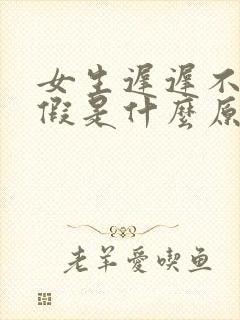 女生遲遲不
假是什麼原
老羊愛喫鱼